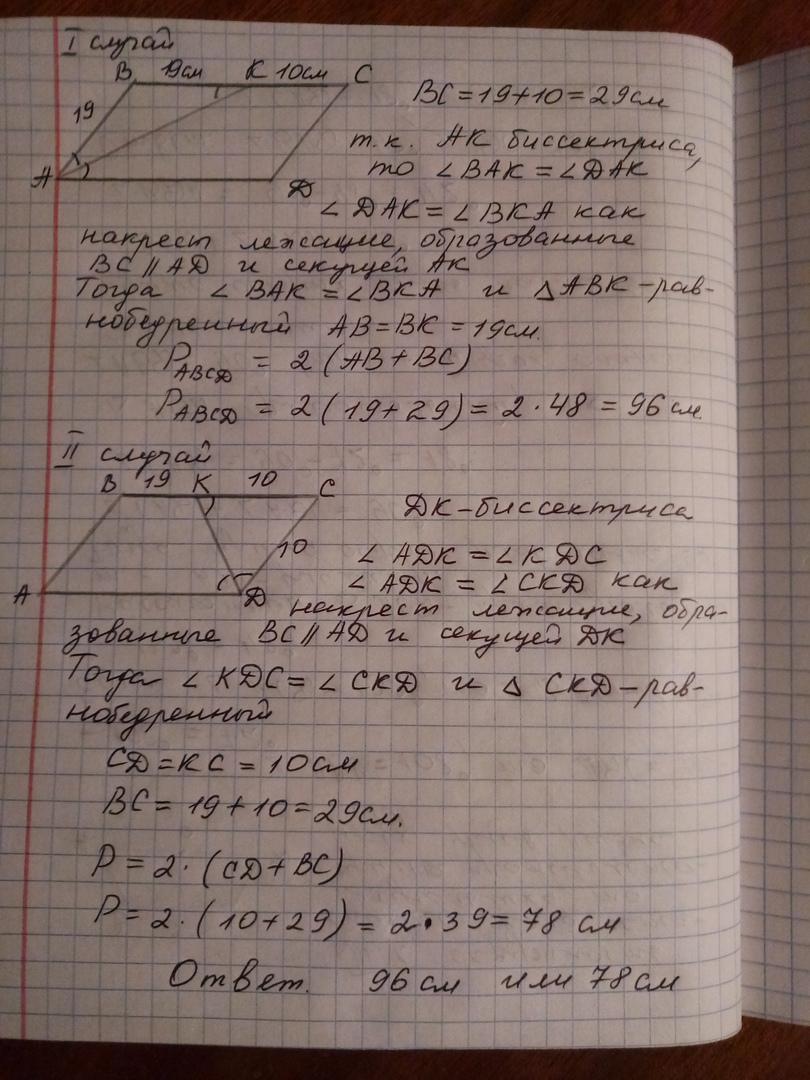 I случай
B 19см K 10см C
BC = 19 + 10 = 29 см
19
т.к. AK биссектриса,
то ∠ BAK = ∠ DAK
A
D
∠ DAK = ∠ BKA как
накрест лежащие, образованные
BC || AD и секущей AK
Тогда ∠ BAK = ∠ BKA и △ ABK – рав-
нобедренный AB = BK = 19см.
P ABCD = 2 (AB + BC)
P ABCD = 2 (19 + 29) = 2 · 48 = 96 см
II случай
B 19 K 10 C
DK – биссектриса
10
∠ ADK = ∠ KDC
∠ ADK = ∠ CKD как
A
D
накрест лежащие, обра-
зованные BC || AD и секущей DK
Тогда ∠ KDC = ∠ CKD и △ CKD – рав-
нобедренный
CD = KC = 10 см
BC = 19 + 10 = 29см.
P = 2 · (CD + BC)
P = 2 · (10 + 29) = 2 · 39 = 78 см
Ответ. 96 см или 78 см